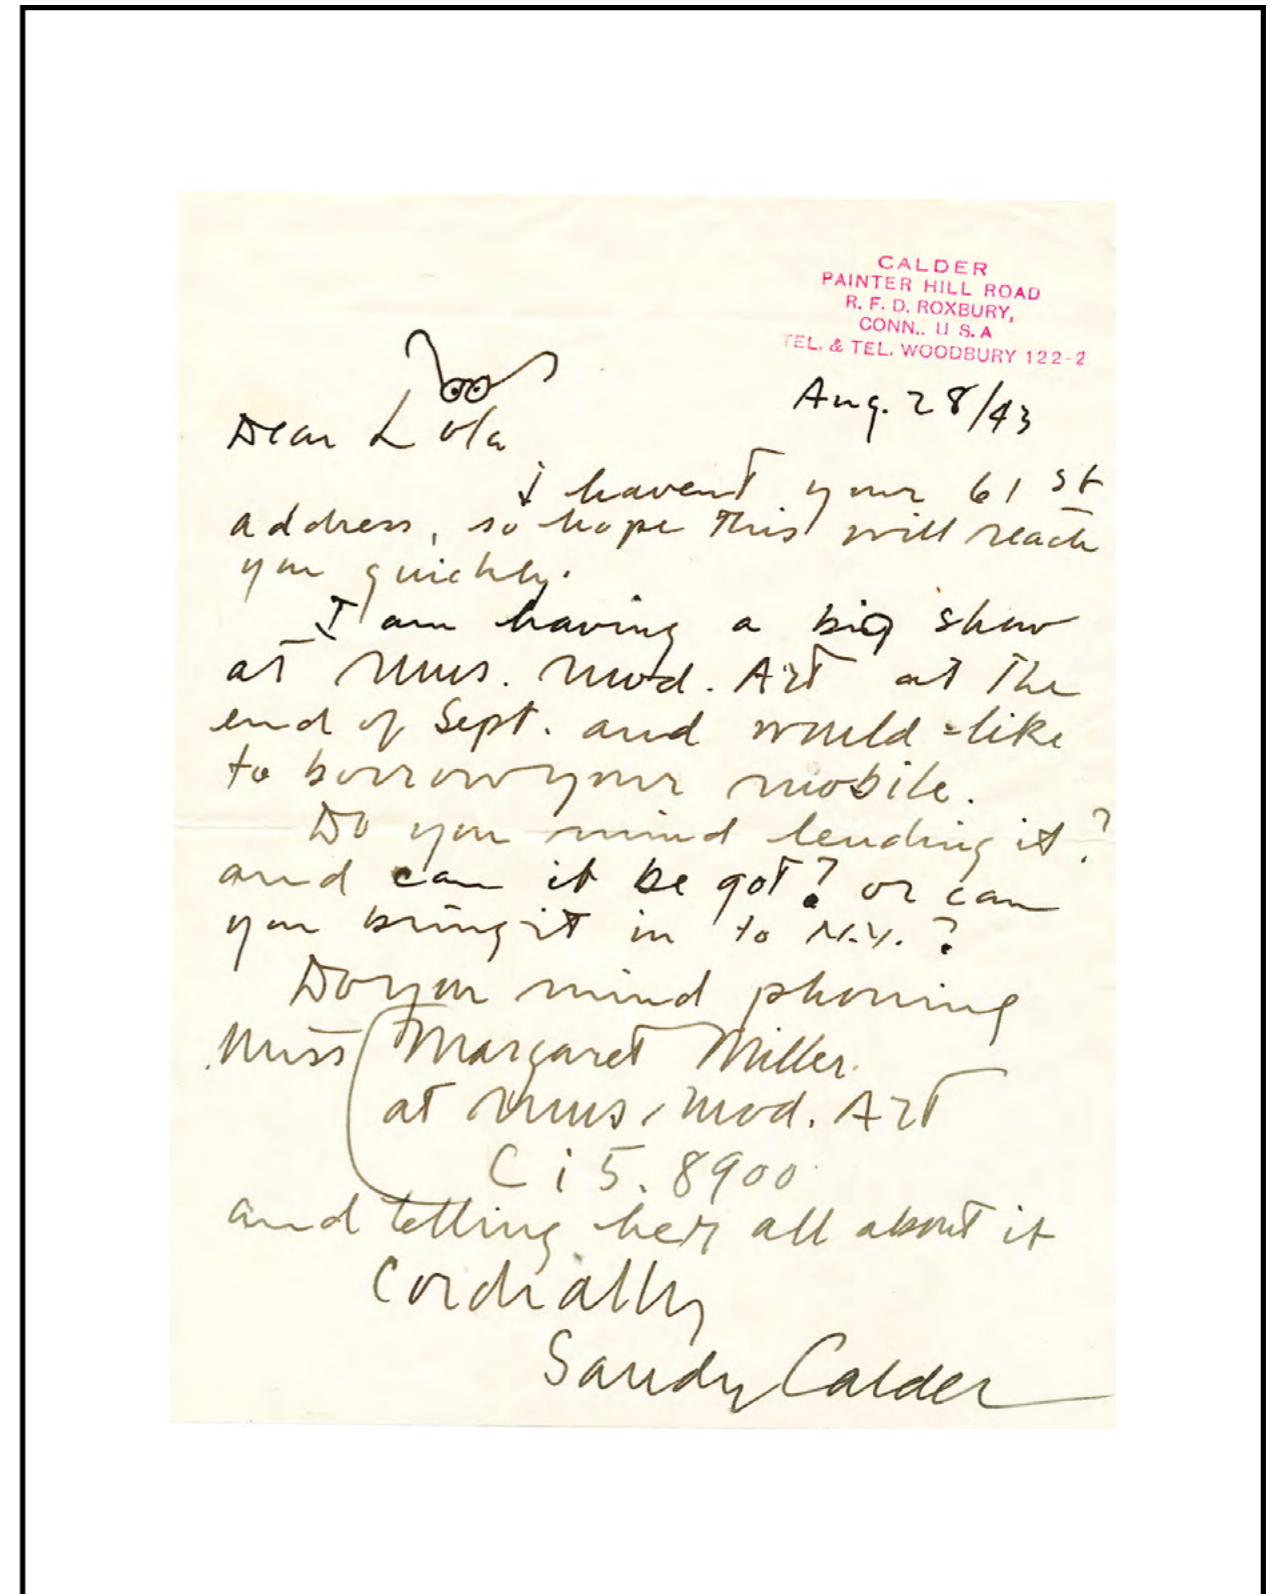 CALDER
PAINTER HILL ROAD
R. F. D. ROXBURY,
CONN.. U S. A
TEL. & TEL. WOODBURY 122-2
Aug. 28/43
Dear Lola
I havent your 61 st
address, so hope this will reach
you quickly.
I am having a big show
at Mus. Mod. Art at the
end of Sept. and would like
to borrow your mobile.
Do you mind lending it?
and can it be got? or can
you bring it in to N.Y. ?
Do you mind phoning
Miss Margaret Miller.
at Mus. Mod. Art
Ci 5. 8900
and telling her all about it
Cordially
Sandy Calder